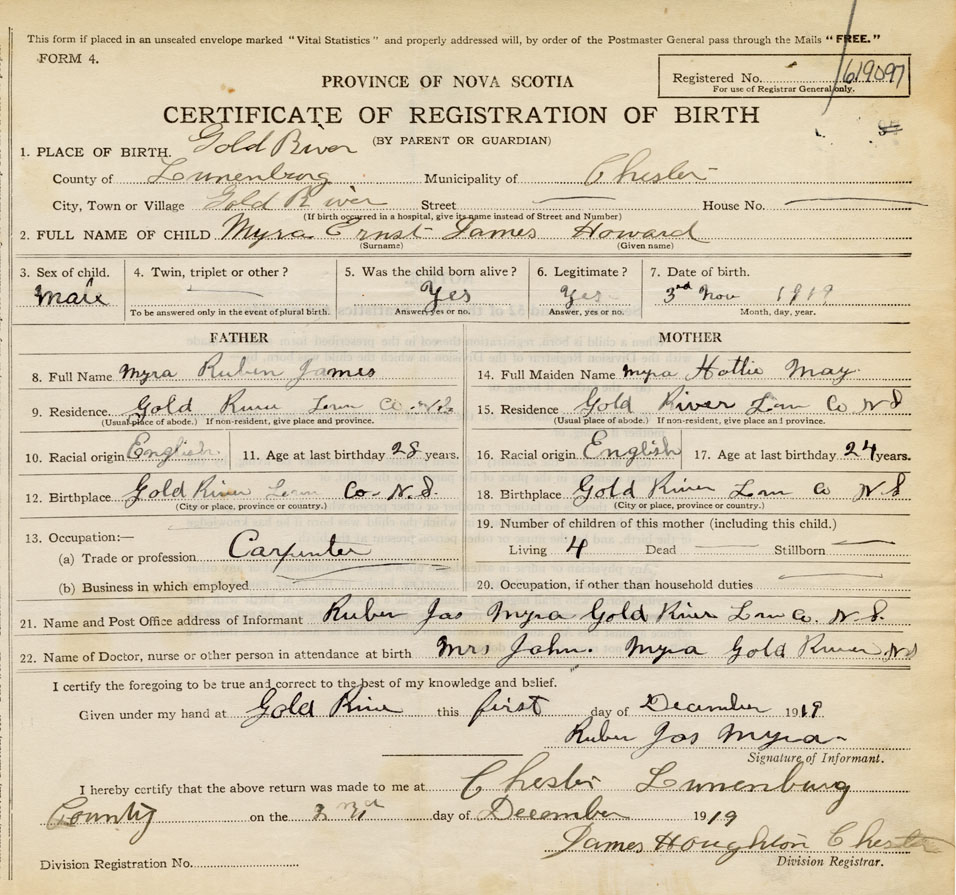 This form if placed in an unsealed envelope marked "Vital Statistics" and properly addressed will, by order of the Postmaster General pass through the Mails "FREE."
FORM 4.
Registered No. 619097
For use of Registrar General only.
PROVINCE OF NOVA SCOTIA
CERTIFICATE OF REGISTRATION OF BIRTH
(BY PARENT OR GUARDIAN)
1. PLACE OF BIRTH. Gold River
County of Lunenburg Municipality of Chester
City, Town or Village Gold River Street House No.
(If birth occurred in a hospital, give its name instead of Street and Number)
2. FULL NAME OF CHILD Myra Ernst James Howard
(Surname) (Given name)
3. Sex of child. 4. Twin, triplet or other? 5. Was the child born alive? 6. Legitimate? 7. Date of birth.
Male Yes Yes 3rd Nov 1919
To be answered only in the event of plural birth. Answer, yes or no. Answer, yes or no. Month, day, year.
FATHER MOTHER
8. Full Name Myra Ruben James 14. Full Maiden Name Myra Hattie May
9. Residence. Gold River Lun Co. N.S. 15. Residence Gold River Lun Co N S
(Usual place of abode.) If non-resident, give place and province. (Usual place of abode.) If non-resident, give place and province.
10. Racial origin English 11. Age at last birthday 28 years. 16. Racial origin English 17. Age at last birthday 24 years.
12. Birthplace Gold River Lun Co. N.S. 18. Birthplace Gold River Lun Co N S
(City or place, province or country.) (City or place, province or country.)
13. Occupation:— 19. Number of children of this mother (including this child.)
(a) Trade or profession Carpenter Living 4 Dead Stillborn
(b) Business in which employed 20. Occupation, if other than household duties
21. Name and Post Office address of Informant Ruben Jas Myra Gold River Lun Co. N. S.
22. Name of Doctor, nurse or other person in attendance at birth Mrs John. Myra Gold River N S
I certify the foregoing to be true and correct to the best of my knowledge and belief.
Given under my hand at Gold River this first day of December 1919
Ruben Jas Myra
Signature of Informant.
I hereby certify that the above return was made to me at Chester Lunenburg
County on the day of December 1919
James Houghton Chester
Division Registration No. Division Registrar.